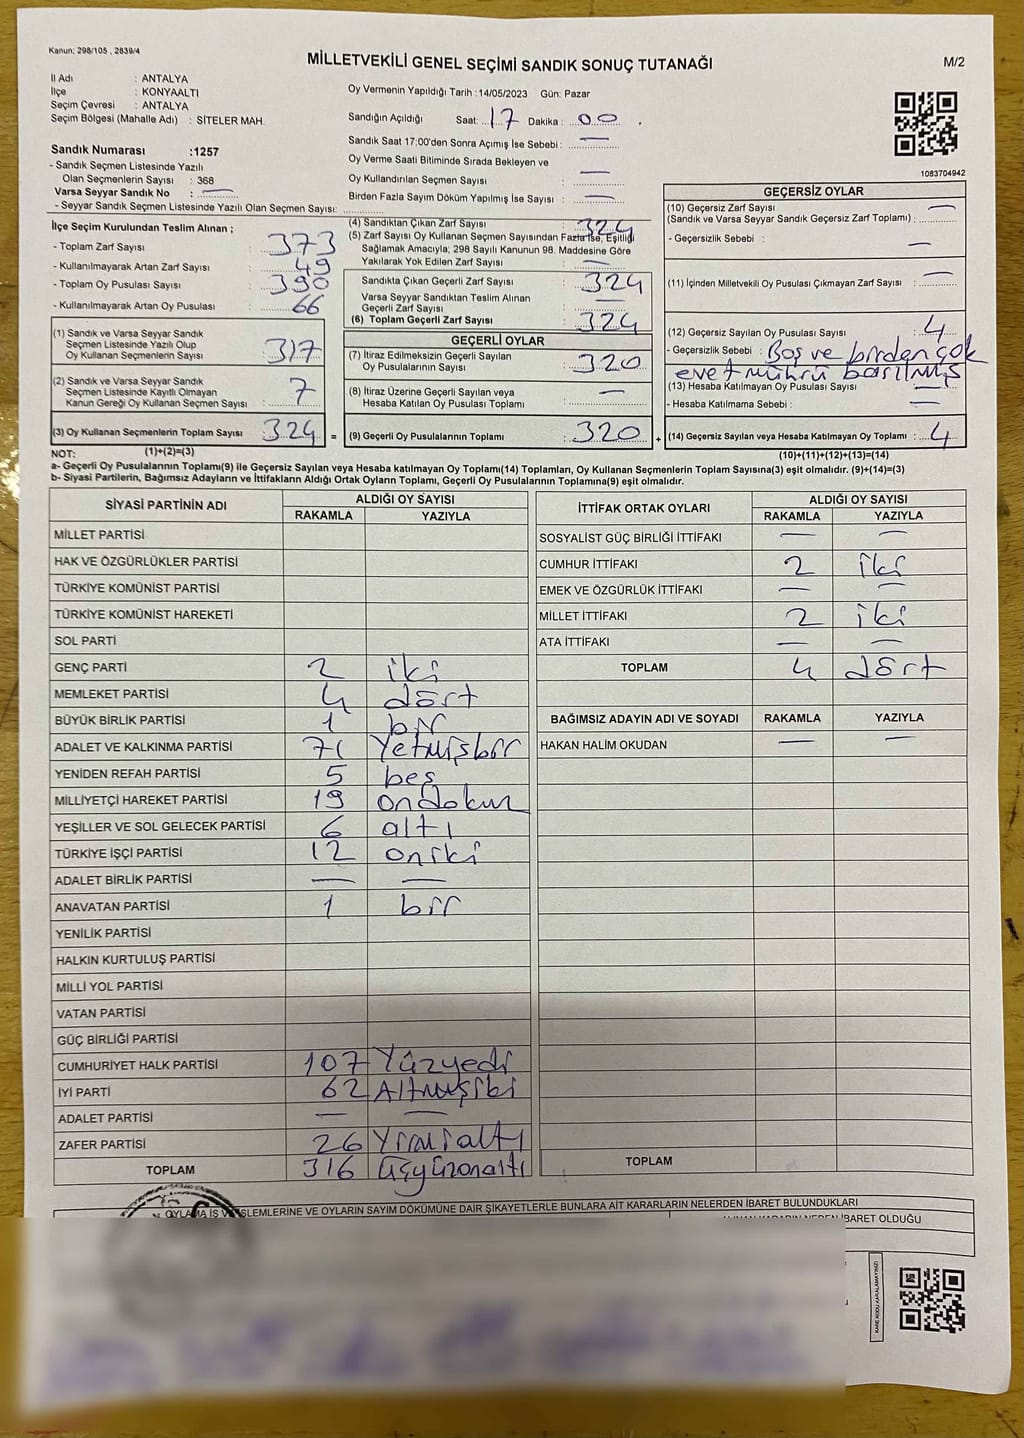 Kanun: 298/105 , 2839/4
MİLLETVEKİLİ GENEL SEÇİMİ SANDIK SONUÇ TUTANAĞI
M/2
İl Adı : ANTALYA
İlçe : KONYAALTI
Seçim Çevresi : ANTALYA
Seçim Bölgesi (Mahalle Adı) : SİTELER MAH.
Sandık Numarası :1257
- Sandık Seçmen Listesinde Yazılı
Olan Seçmenlerin Sayısı : 368
Varsa Seyyar Sandık No : —
- Seyyar Sandık Seçmen Listesinde Yazılı Olan Seçmen Sayısı:
Oy Vermenin Yapıldığı Tarih :14/05/2023 Gün: Pazar
Sandığın Açıldığı Saat: 17 Dakika : 00
Sandık Saat 17:00'den Sonra Açımış İse Sebebi : —
Oy Verme Saati Bitiminde Sırada Bekleyen ve
Oy Kullandırılan Seçmen Sayısı : —
Birden Fazla Sayım Döküm Yapılmış İse Sayısı : —
1083704942
İlçe Seçim Kurulundan Teslim Alınan ;
- Toplam Zarf Sayısı : 373
- Kullanılmayarak Artan Zarf Sayısı : 49
- Toplam Oy Pusulası Sayısı : 390
- Kullanılmayarak Artan Oy Pusulası : 66
(1) Sandık ve Varsa Seyyar Sandık
Seçmen Listesinde Yazılı Olup
Oy Kullanan Seçmenlerin Sayısı : 317
(2) Sandık ve Varsa Seyyar Sandık
Seçmen Listesinde Kayıtlı Olmayan
Kanun Gereği Oy Kullanan Seçmen Sayısı : 7
(3) Oy Kullanan Seçmenlerin Toplam Sayısı : 324
(4) Sandıktan Çıkan Zarf Sayısı : 324
(5) Zarf Sayısı Oy Kullanan Seçmen Sayısından Fazla İse, Eşitliği
Sağlamak Amacıyla; 298 Sayılı Kanunun 98. Maddesine Göre
Yakılarak Yok Edilen Zarf Sayısı : —
Sandıkta Çıkan Geçerli Zarf Sayısı : 324
Varsa Seyyar Sandıktan Teslim Alınan
Geçerli Zarf Sayısı : —
(6) Toplam Geçerli Zarf Sayısı : 324
GEÇERLİ OYLAR
(7) İtiraz Edilmeksizin Geçerli Sayılan
Oy Pusulalarının Sayısı : 320
(8) İtiraz Üzerine Geçerli Sayılan veya
Hesaba Katılan Oy Pusulası Toplamı : —
= (9) Geçerli Oy Pusulalarının Toplamı : 320 +
GEÇERSİZ OYLAR
(10) Geçersiz Zarf Sayısı
(Sandık ve Varsa Seyyar Sandık Geçersiz Zarf Toplamı) : —
- Geçersizlik Sebebi : —
(11) İçinden Milletvekili Oy Pusulası Çıkmayan Zarf Sayısı : —
(12) Geçersiz Sayılan Oy Pusulası Sayısı : 4
- Geçersizlik Sebebi : Boş ve birden çok
evet mührü basılmış
(13) Hesaba Katılmayan Oy Pusulası Sayısı : —
- Hesaba Katılmama Sebebi : —
(14) Geçersiz Sayılan veya Hesaba Katılmayan Oy Toplamı : 4
NOT: (1)+(2)=(3)
(10)+(11)+(12)+(13)=(14)
a- Geçerli Oy Pusulalarının Toplamı(9) ile Geçersiz Sayılan veya Hesaba katılmayan Oy Toplamı(14) Toplamları, Oy Kullanan Seçmenlerin Toplam Sayısına(3) eşit olmalıdır. (9)+(14)=(3)
b- Siyasi Partilerin, Bağımsız Adayların ve İttifakların Aldığı Ortak Oyların Toplamı, Geçerli Oy Pusulalarının Toplamına(9) eşit olmalıdır.
SİYASİ PARTİNİN ADI ALDIĞI OY SAYISI
RAKAMLA YAZIYLA
MİLLET PARTİSİ
HAK VE ÖZGÜRLÜKLER PARTİSİ
TÜRKİYE KOMÜNİST PARTİSİ
TÜRKİYE KOMÜNİST HAREKETİ
SOL PARTİ
GENÇ PARTİ 2 iki
MEMLEKET PARTİSİ 4 dört
BÜYÜK BİRLİK PARTİSİ 1 bir
ADALET VE KALKINMA PARTİSİ 71 Yetmişbir
YENİDEN REFAH PARTİSİ 5 beş
MİLLİYETÇİ HAREKET PARTİSİ 19 ondokuz
YEŞİLLER VE SOL GELECEK PARTİSİ 6 altı
TÜRKİYE İŞÇİ PARTİSİ 12 oniki
ADALET BİRLİK PARTİSİ — —
ANAVATAN PARTİSİ 1 bir
YENİLİK PARTİSİ
HALKIN KURTULUŞ PARTİSİ
MİLLİ YOL PARTİSİ
VATAN PARTİSİ
GÜÇ BİRLİĞİ PARTİSİ
CUMHURİYET HALK PARTİSİ 107 Yüzyedi
İYİ PARTİ 62 Altmışiki
ADALET PARTİSİ — —
ZAFER PARTİSİ 26 Yirmialtı
TOPLAM 316 Üçyüzonaltı
İTTİFAK ORTAK OYLARI ALDIĞI OY SAYISI
RAKAMLA YAZIYLA
SOSYALİST GÜÇ BİRLİĞİ İTTİFAKI — —
CUMHUR İTTİFAKI 2 iki
EMEK VE ÖZGÜRLÜK İTTİFAKI — —
MİLLET İTTİFAKI 2 iki
ATA İTTİFAKI — —
TOPLAM 4 dört
BAĞIMSIZ ADAYIN ADI VE SOYADI RAKAMLA YAZIYLA
HAKAN HALİM OKUDAN — —
TOPLAM
OYLAMA İŞ VE İŞLEMLERİNE VE OYLARIN SAYIM DÖKÜMÜNE DAİR ŞİKAYETLERLE BUNLARA AİT KARARLARIN NELERDEN İBARET BULUNDUKLARI
İBARET OLDUĞU
KARE KODU KARALAMAYINIZ!